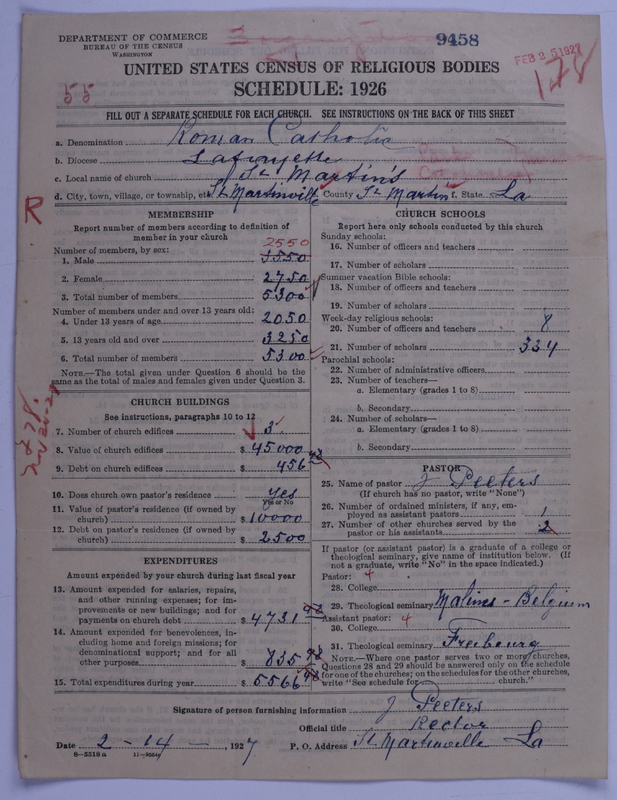 DEPARTMENT OF COMMERCE
BUREAU OF THE CENSUS
WASHINGTON
9458
FEB 25 1927
178
UNITED STATES CENSUS OF RELIGIOUS BODIES
55
SCHEDULE: 1926
FILL OUT A SEPARATE SCHEDULE FOR EACH CHURCH. SEE INSTRUCTIONS ON THE BACK OF THIS SHEET
a. Denomination Roman Catholic
b. Diocese Lafayette
c. Local name of church St Martin's
d. City, town, village, or township, etc. St. Martinville County St Martin f. State La
R
MEMBERSHIP
Report number of members according to definition of
member in your church
Number of members, by sex:
2550
1. Male 3550
2. Female 2750
3. Total number of members 5300
Number of members under and over 13 years old:
4. Under 13 years of age 2050
5. 13 years old and over 3250
6. Total number of members 5300
NOTE.—The total given under Question 6 should be the
same as the total of males and females given under Question 3.
CHURCH BUILDINGS
See instructions, paragraphs 10 to 12
7. Number of church edifices 3
8. Value of church edifices $ 45000
9. Debt on church edifices $ 456 43
10. Does church own pastor's residence yes
Yes or No
11. Value of pastor's residence (if owned by
church) $ 10000
12. Debt on pastor's residence (if owned by
church) $ 2500
EXPENDITURES
Amount expended by your church during last fiscal year
13. Amount expended for salaries, repairs,
and other running expenses; for im-
provements or new buildings; and for
payments on church debt $ 4731
14. Amount expended for benevolences, in-
cluding home and foreign missions; for
denominational support; and for all
other purposes $ 835
15. Total expenditures during year $ 5566
CHURCH SCHOOLS
Report here only schools conducted by this church
Sunday schools:
16. Number of officers and teachers
17. Number of scholars
Summer vacation Bible schools:
18. Number of officers and teachers
19. Number of scholars
Week-day religious schools:
20. Number of officers and teachers 8
21. Number of scholars 334
Parochial schools:
22. Number of administrative officers
23. Number of teachers—
a. Elementary (grades 1 to 8)
b. Secondary
24. Number of scholars—
a. Elementary (grades 1 to 8)
b. Secondary
PASTOR
25. Name of pastor J Peeters
(If church has no pastor, write "None")
26. Number of ordained ministers, if any, em-
ployed as assistant pastors 1
27. Number of other churches served by the
pastor or his assistants 2
If pastor (or assistant pastor) is a graduate of a college or
theological seminary, give name of institution below. (If
not a graduate, write "No" in the space indicated.)
Pastor: 4
28. College
29. Theological seminary Malines - Belgium
Assistant pastor: 4
30. College
31. Theological seminary Freibourg
NOTE.—Where one pastor serves two or more churches,
Questions 28 and 29 should be answered only on the schedule
for one of the churches; on the schedules for the other churches,
write "See schedule for church."
Signature of person furnishing information J Peeters
Official title Rector
Date 2 - 14 -, 1927 P. O. Address St Martinville La
8—5518a 11—9054